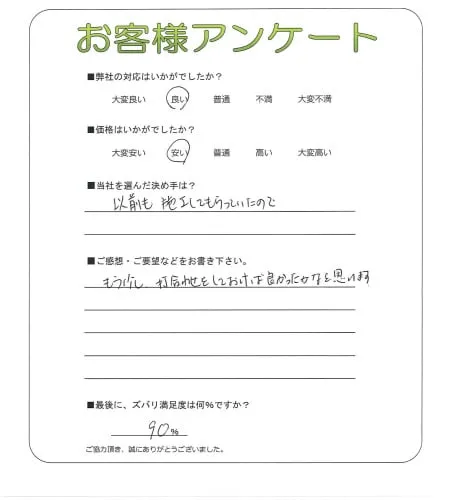 お客様アンケート
■弊社の対応はいかがでしたか？
大変良い 良い 普通 不満 大変不満
■価格はいかがでしたか？
大変安い 安い 普通 高い 大変高い
■当社を選んだ決め手は？
以前も施工してもらっていたので
■ご感想・ご要望などをお書き下さい。
もう少し、打合わせをしておけば良かったかなと思います
■最後に、ズバリ満足度は何%ですか？
90%
ご協力頂き、誠にありがとうございました。